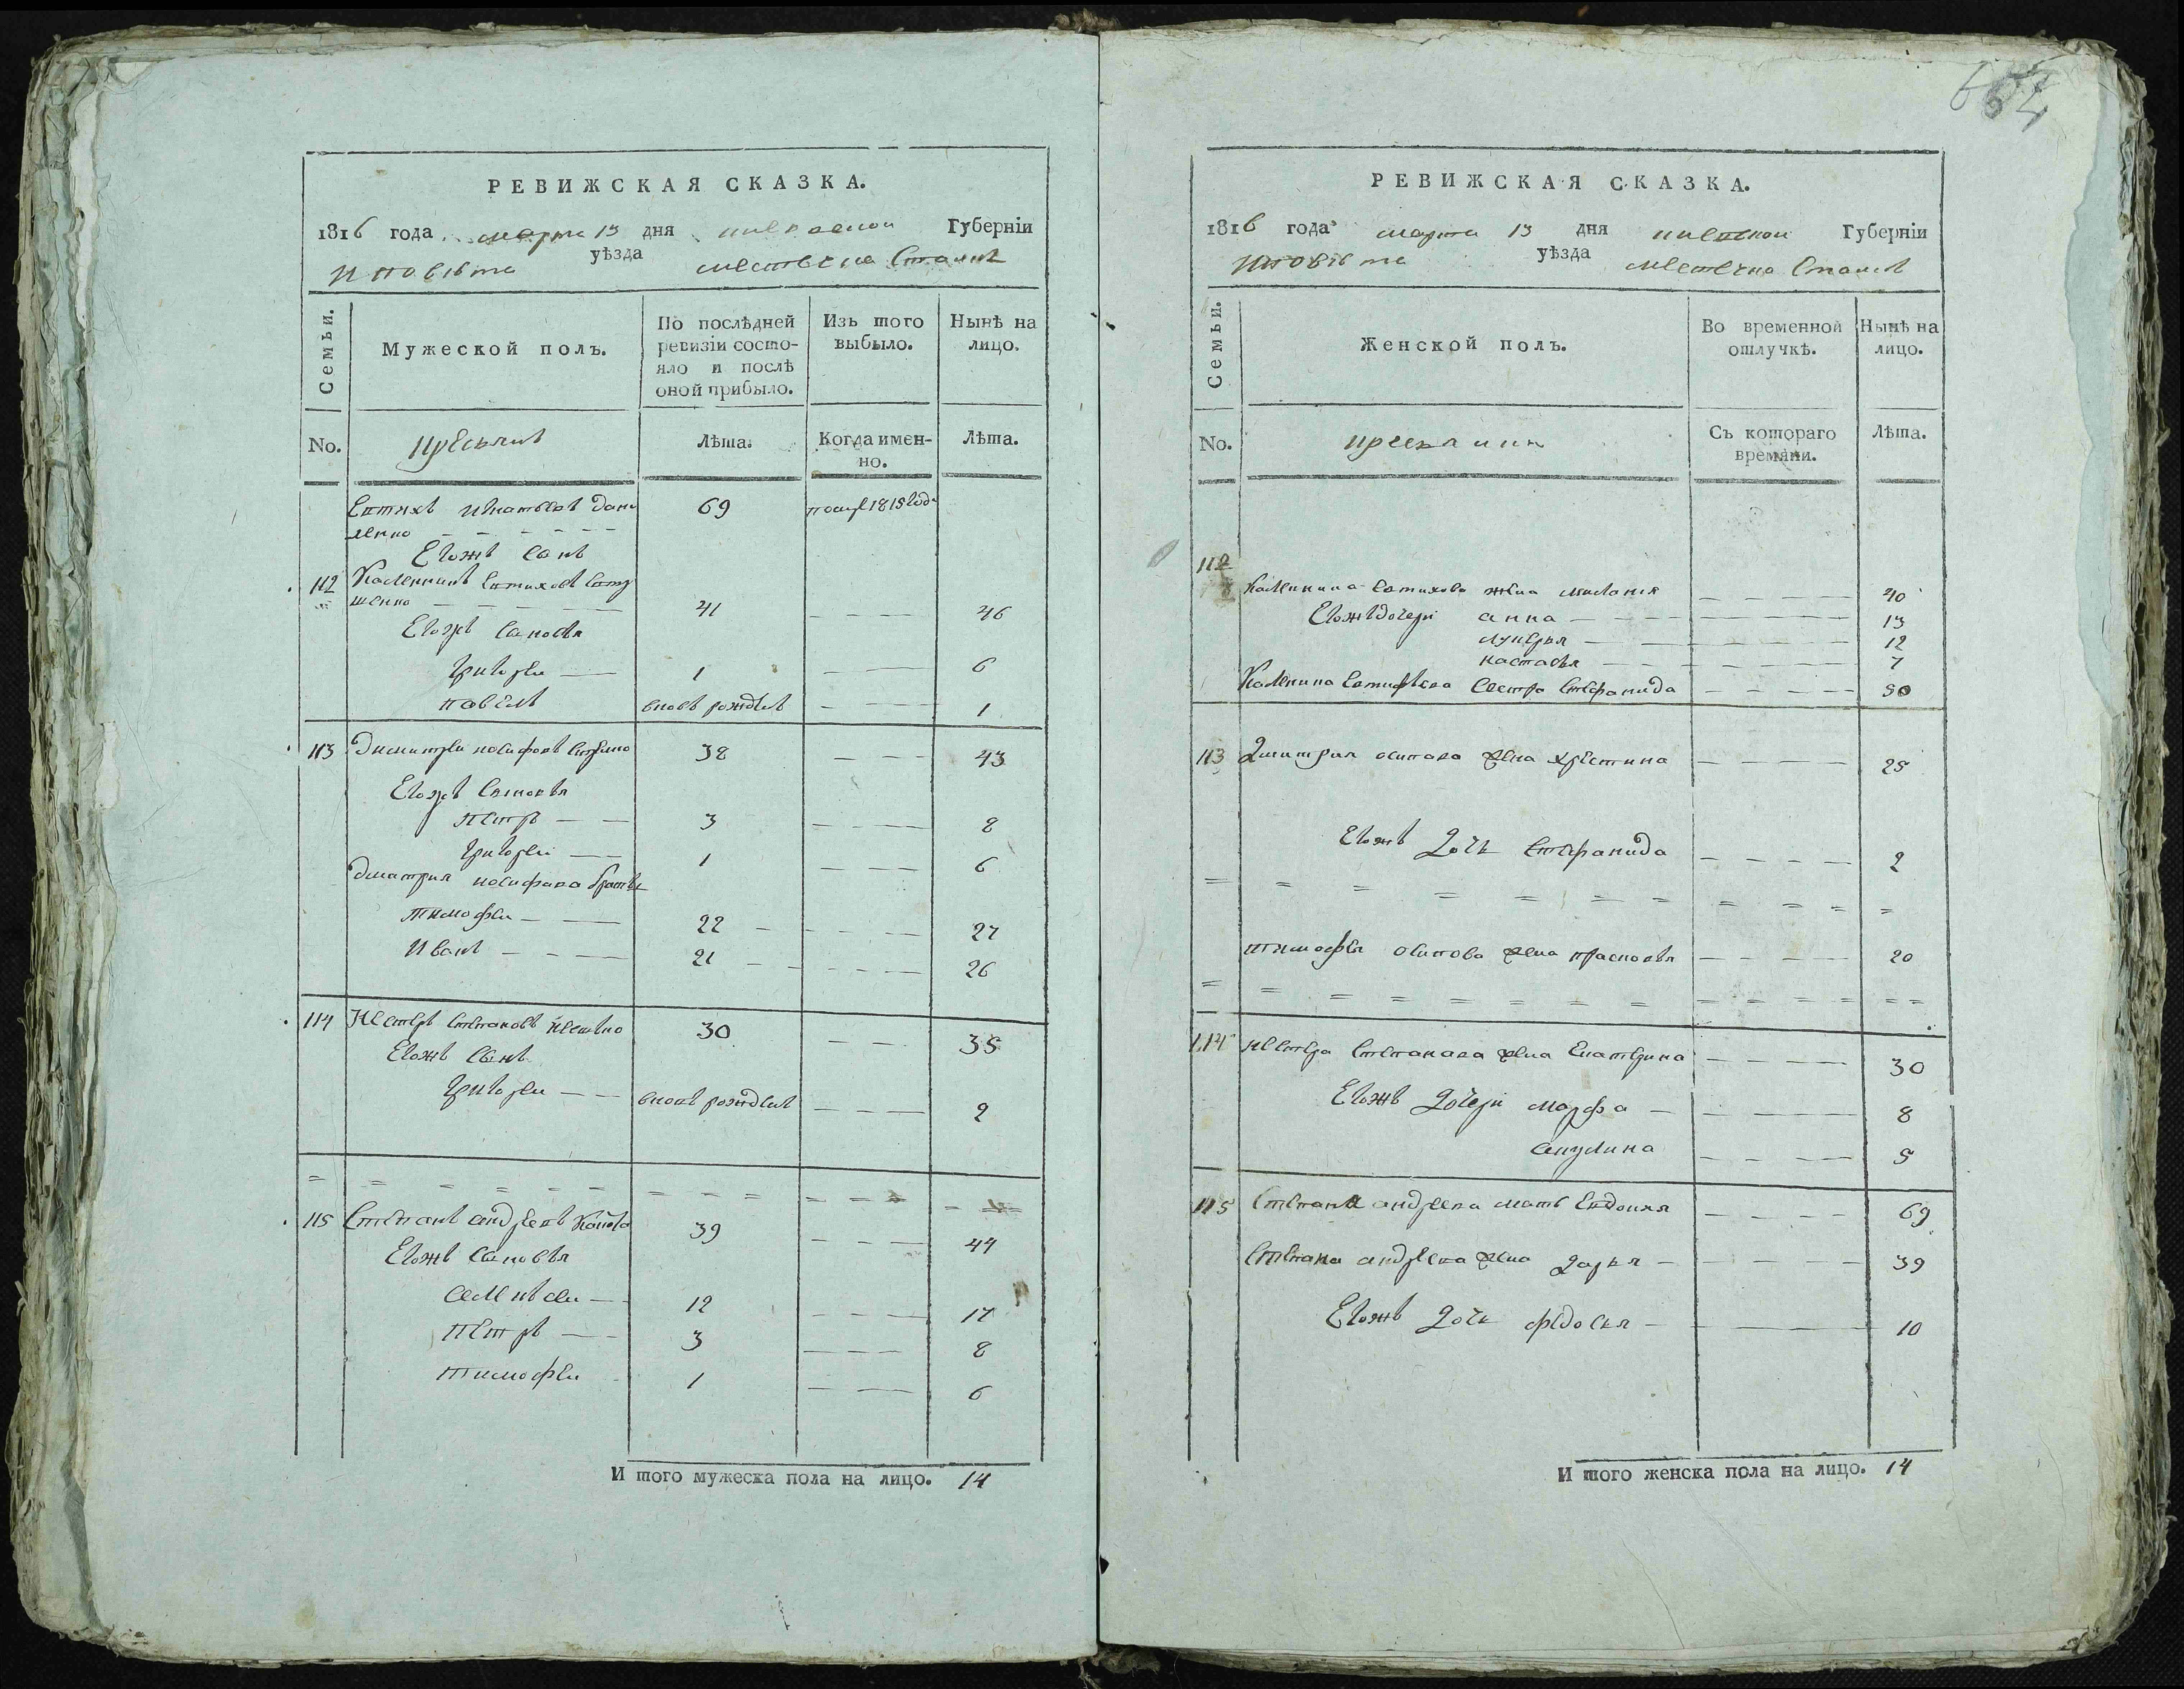 РЕВИЖСКАЯ СКАЗКА.
1816 года марта 13 дня киевской Губерніи
И повѣта уѣзда местечка Ставищ
Семьи.
Мужеской полъ.
По послѣдней ревизіи состо-
яло и послѣ
оной прибыло.
Изъ того
выбыло.
Нынѣ на
лицо.
No.
Лѣта.
Когда имен-
но.
Лѣта.
Евтихъ Игнатьевъ 69 1815 года
Евожъ Сынъ
112 Каленникъ Евтиховъ
41 — — — 46
Евожъ Сыновья
Григорей — 1 — — 6
павелъ вновь рожденъ — — 1
113 Димитрей иосифовъ 38 — — — 43
Евожъ Сыновья
Петръ — — 3 — — — 8
Григорей — 1 — — — 6
Дмитрия иосифова братья
Тимофей — — 22 — — — — 27
Иванъ — — — 21 — — — — 26
114 Нестеръ Степановъ 30 — — 35
Евожъ Сынъ
Григорей — — вновь рожденъ — — — 2
= = = = = = = = = = = =
115 Степанъ андреевъ 39 — — — 44
Евожъ Сыновья
12 — — — 17
Петръ — — 3 — — — 8
тимофей 1 — — — 6
И того мужеска пола на лицо. 14
РЕВИЖСКАЯ СКАЗКА.
1816 года марта 13 дня киевской Губерніи
повѣта уѣзда местечка Ставищ
Семьи.
Женской полъ.
Во временной
отлучкѣ.
Нынѣ на
лицо.
No.
Съ котораго
времяни.
Лѣта.
112
Каленика Евтихова жена милания — — — — 40
Евожъ дочери анна — — — — — 13
лукерья — — — — 12
настасья — — — — — 7
Каленика Сестра Стефанида — — — — 50
113 Дмитрия осипова жена христина — — — — 25
Евожъ Дочь Стефанида — — — — 2
= = = = = = = = = = = =
тимофея осипова жена прасковья — — — — 20
= = = = = = = = = = = = = =
114 нестера Степанова жена Екатерина — — — — 30
Евожъ Дочери марфа — — — — 8
акулина — — — — 5
115 Степана андреева мать Евдокия — — — — 69
Степана андреева жена Дарья — — — — — 39
Евожъ Дочь федосья — — — 10
И того женска пола на лицо. 14